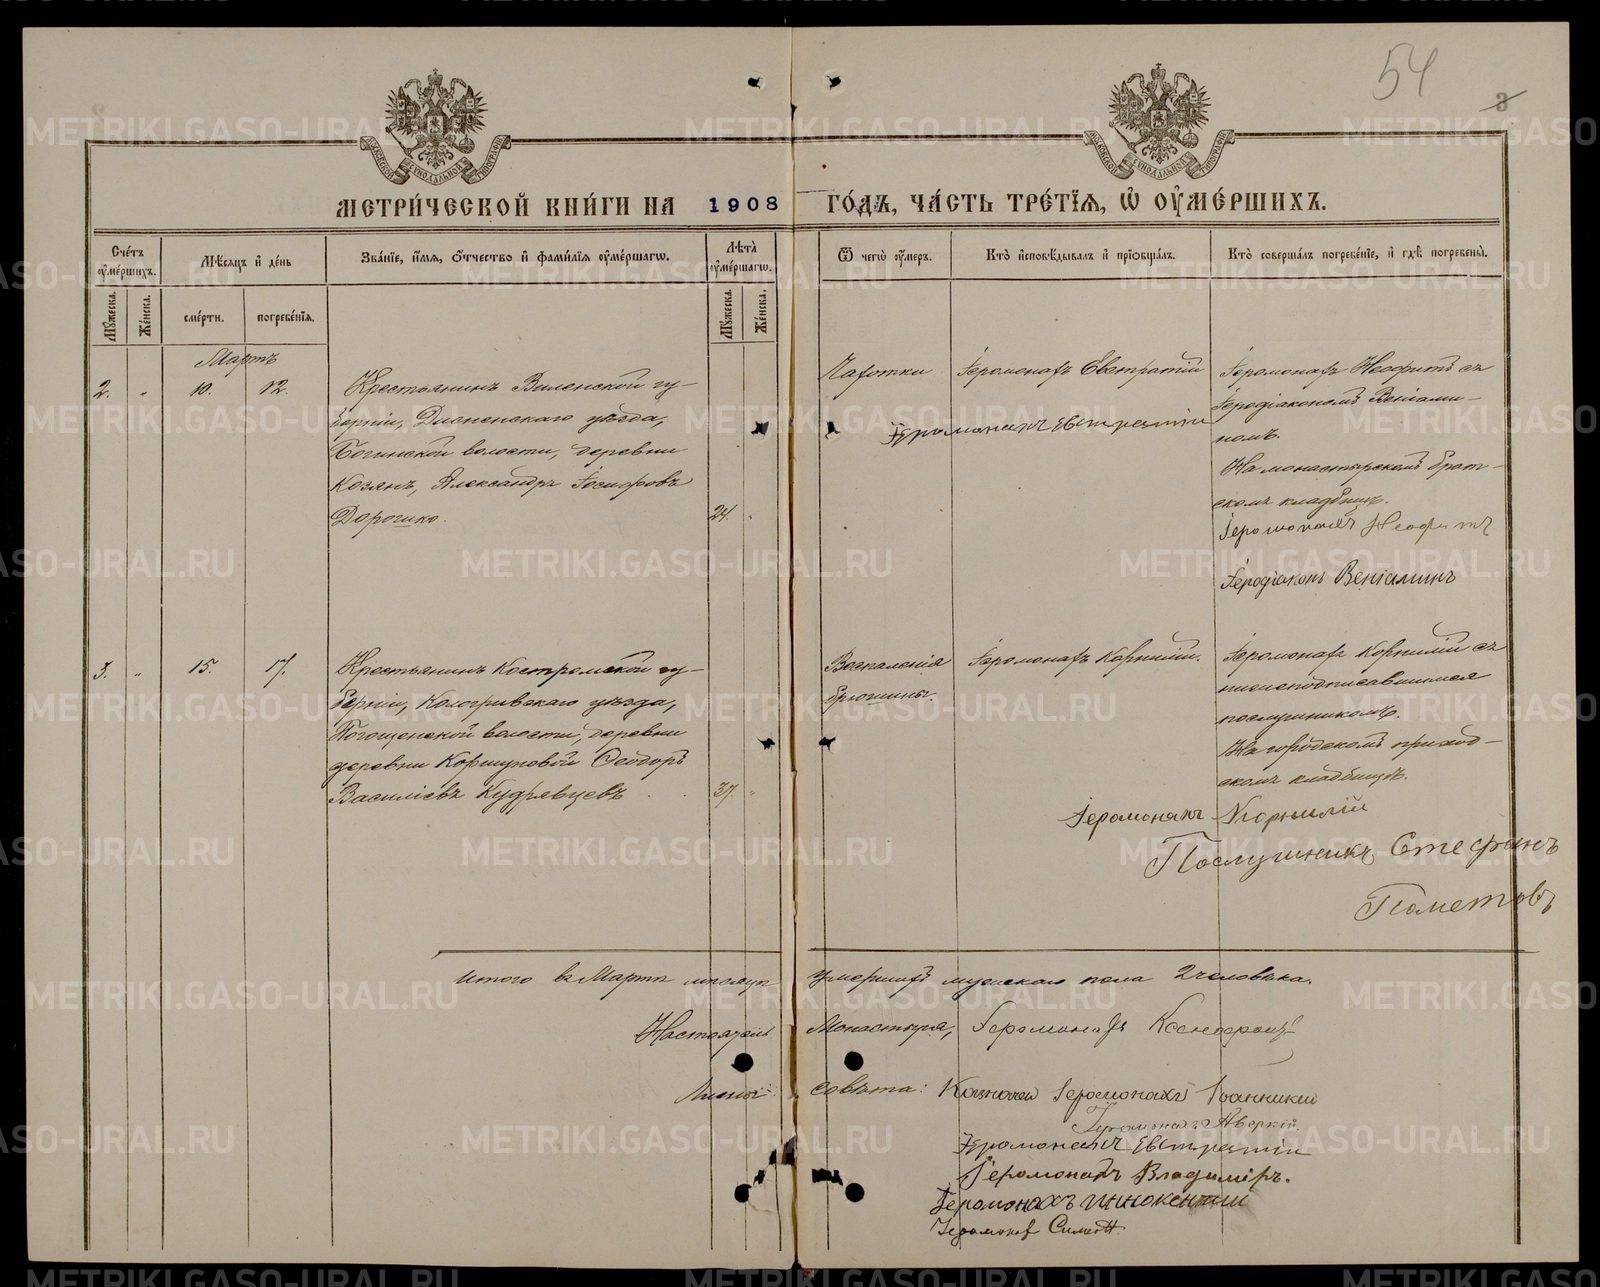 54
3
МОСКОВСКОЙ СѴНОДАЛЬНОЙ ТИПОГРАФІИ
МОСКОВСКОЙ СѴНОДАЛЬНОЙ ТИПОГРАФІИ
МЕТРИ́ЧЕСКОЙ КНИ́ГИ НА 1908 ГО́ДЪ, ЧА́СТЬ ТРЕ́ТІѦ, Ѡ҆ ОУ҆МЕ́РШИХЪ.
Сче́тъ оу҆ме́ршихъ.
Мѣ́сѧцъ и҆ де́нь
Зва́нїе, и҆́мѧ, ѻ҆́тчество и҆ фами́лїѧ оу҆ме́ршагѡ.
Лѣ̑та оу҆ме́ршагѡ.
Ѿ чегѡ̀ оу҆́меръ.
Кто̀ и҆сповѣ́дывалъ и҆ прїѡбща́лъ.
Кто̀ соверша́лъ погребе́нїе, и҆ гдѣ̀ погребены̀.
Мꙋ́жеска.
Же́нска.
сме́рти.
погребе́нїѧ.
Мꙋ́жеска.
Же́нска.
Мартъ
2. " 10. 12.
Крестьянинъ Виленской гу-
берніи, Дисненскаго уѣзда,
Богинской волости, деревни
Козянъ, Александръ Іосифовъ
Дорошко. 24. "
Чахотки
Іеромонахъ Евстратій
Іеромонахъ Евстратій
Іеромонахъ Неофитъ съ
Іеродіакономъ Веніами-
номъ.
На монастырскомъ брат-
скомъ кладбищѣ.
Іеромонахъ Неофитъ
Іеродіаконъ Веніаминъ
3. " 15. 17.
Крестьянинъ Костромской гу-
берніи, Кологривскаго уѣзда,
волости, деревни
деревни Коршуновой Ѳеодоръ
Василіевъ Кудрявцевъ 37. "
Воспаленія
брюшины.
Іеромонахъ Корнилій.
Іеромонахъ Корнилій съ
нижеподписавшимся
послушникомъ.
На городскомъ приход-
скомъ кладбищѣ.
Іеромонахъ Корнилій
Послушникъ Стефанъ
Пометовъ
Итого въ Мартѣ мѣсяцѣ умершихъ мужескаго пола 2 человѣка.
Настоятель Монастыря, Іеромонахъ Ксенофонтъ
Члены совѣта: Казначей Іеромонахъ Іоанникій
Іеромонахъ Аверкій.
Іеромонахъ Евстратій
Іеромонахъ Владиміръ.
Іеромонахъ Инокентий
Іеромонах Симеонъ
METRIKI.GASO-URAL.RU